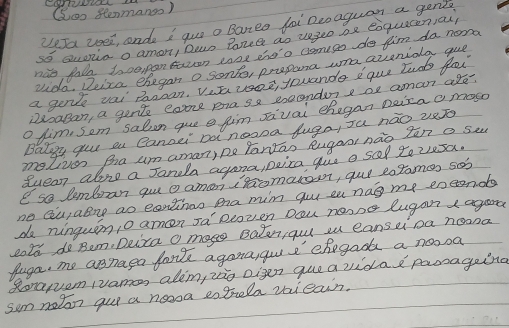 (Sios Hermanos)
Veja você, onde é que o Barco foi Desaguar a gente
só queria o amor, Deus Parece às vezes se esquecer, ai,
não fala isso, por favor esse é só o começo do fim da nossa
vida. Deixa chegar o sonho, prepara uma avenida que
a gente vai Passar. Veja você, quando é que tudo foi
Desabar, a gente corre pra se esconder e se amar até
o fim. Sem saber que o fim já vai chegar Deixa o moço
Bater, que eu cansei Da nossa fuga, já não vejo
motivos pra um amor, De Tantas Rugas não Ter o seu
lugar abre a Janela agora, Deixa que o sol Te veja.
É só lembrar que o amor é tão maior, que estamos sós
no céu, abre as cortinas pra mim que eu não me escondo
de ninguém, O amor Já Desvendou nosso lugar e agora
está de Bem. Deixa o moço Bater, que eu cansei Da nossa
fuga. me abraça forte agora, que é chegada a nossa
vamos além, vão Dizer que a vida é Passageira
Sem notar que a nossa estrela vai cair.